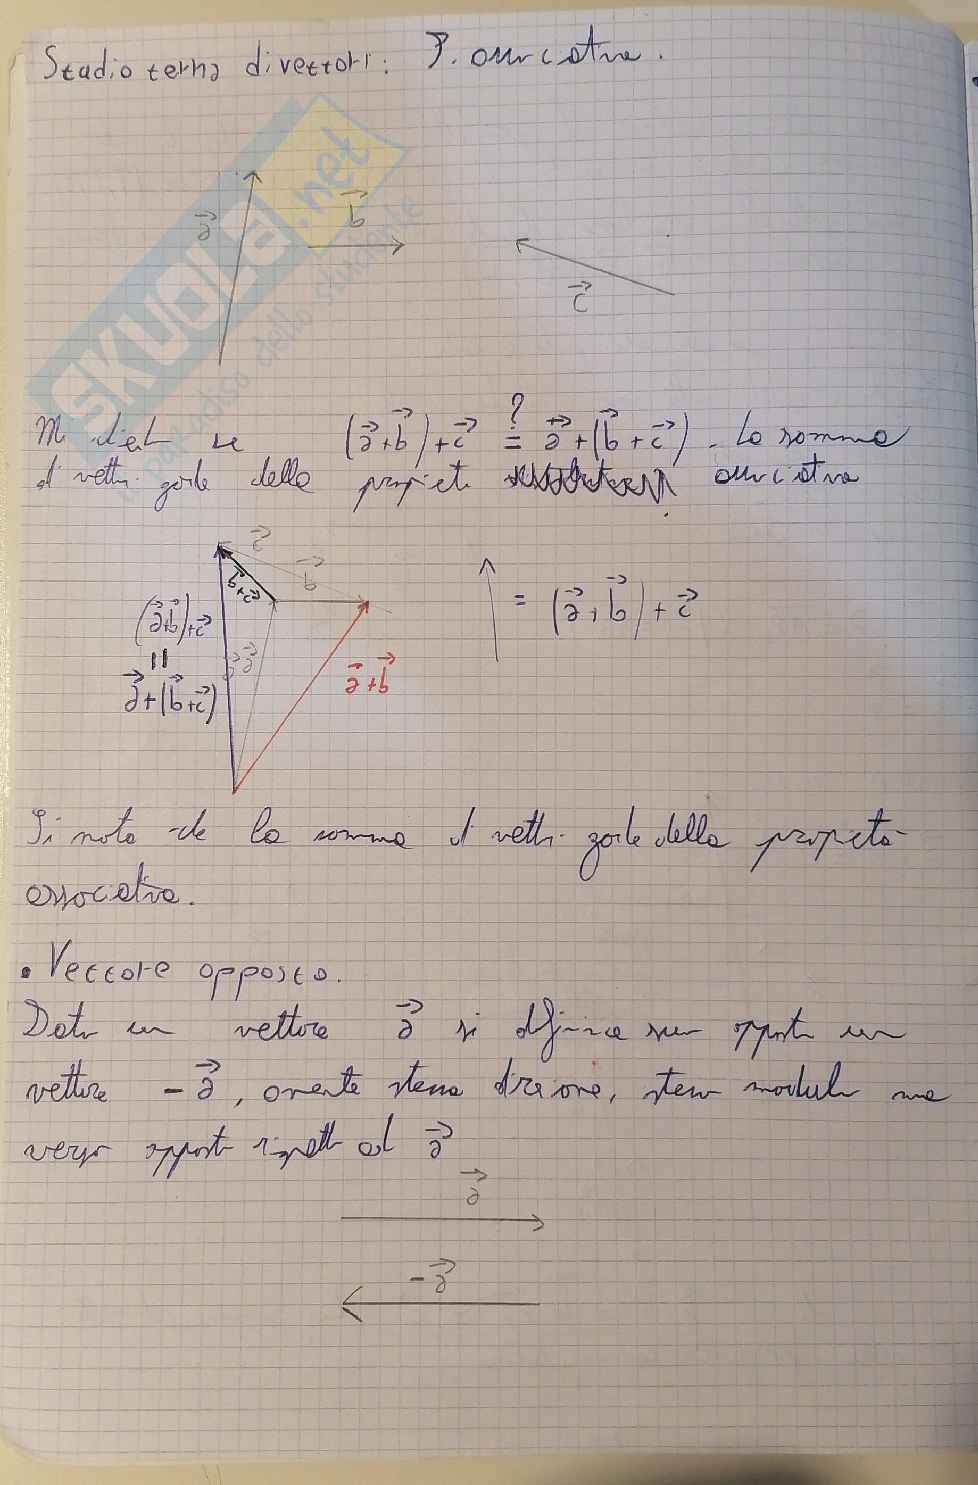 Studio terna di vettori: P. associativa.
SKUOLA.net
paradiso dello studente
a⃗
b⃗
c⃗
M chiedo se (a⃗+b⃗)+c⃗ =? a⃗+(b⃗+c⃗). La somma
di vettori gode della proprietà associativa
c⃗
b⃗
b⃗+c⃗
(a⃗+b⃗)+c⃗
=
a⃗+(b⃗+c⃗)
a⃗
a⃗+b⃗
= (a⃗+b⃗)+c⃗
Si nota che la somma di vettori gode della proprietà
associativa.
• Vettore opposto.
Dato un vettore a⃗ si definisce suo opposto un
vettore -a⃗, avente stessa direzione, stesso modulo ma
verso opposto rispetto ad a⃗
a⃗
-a⃗